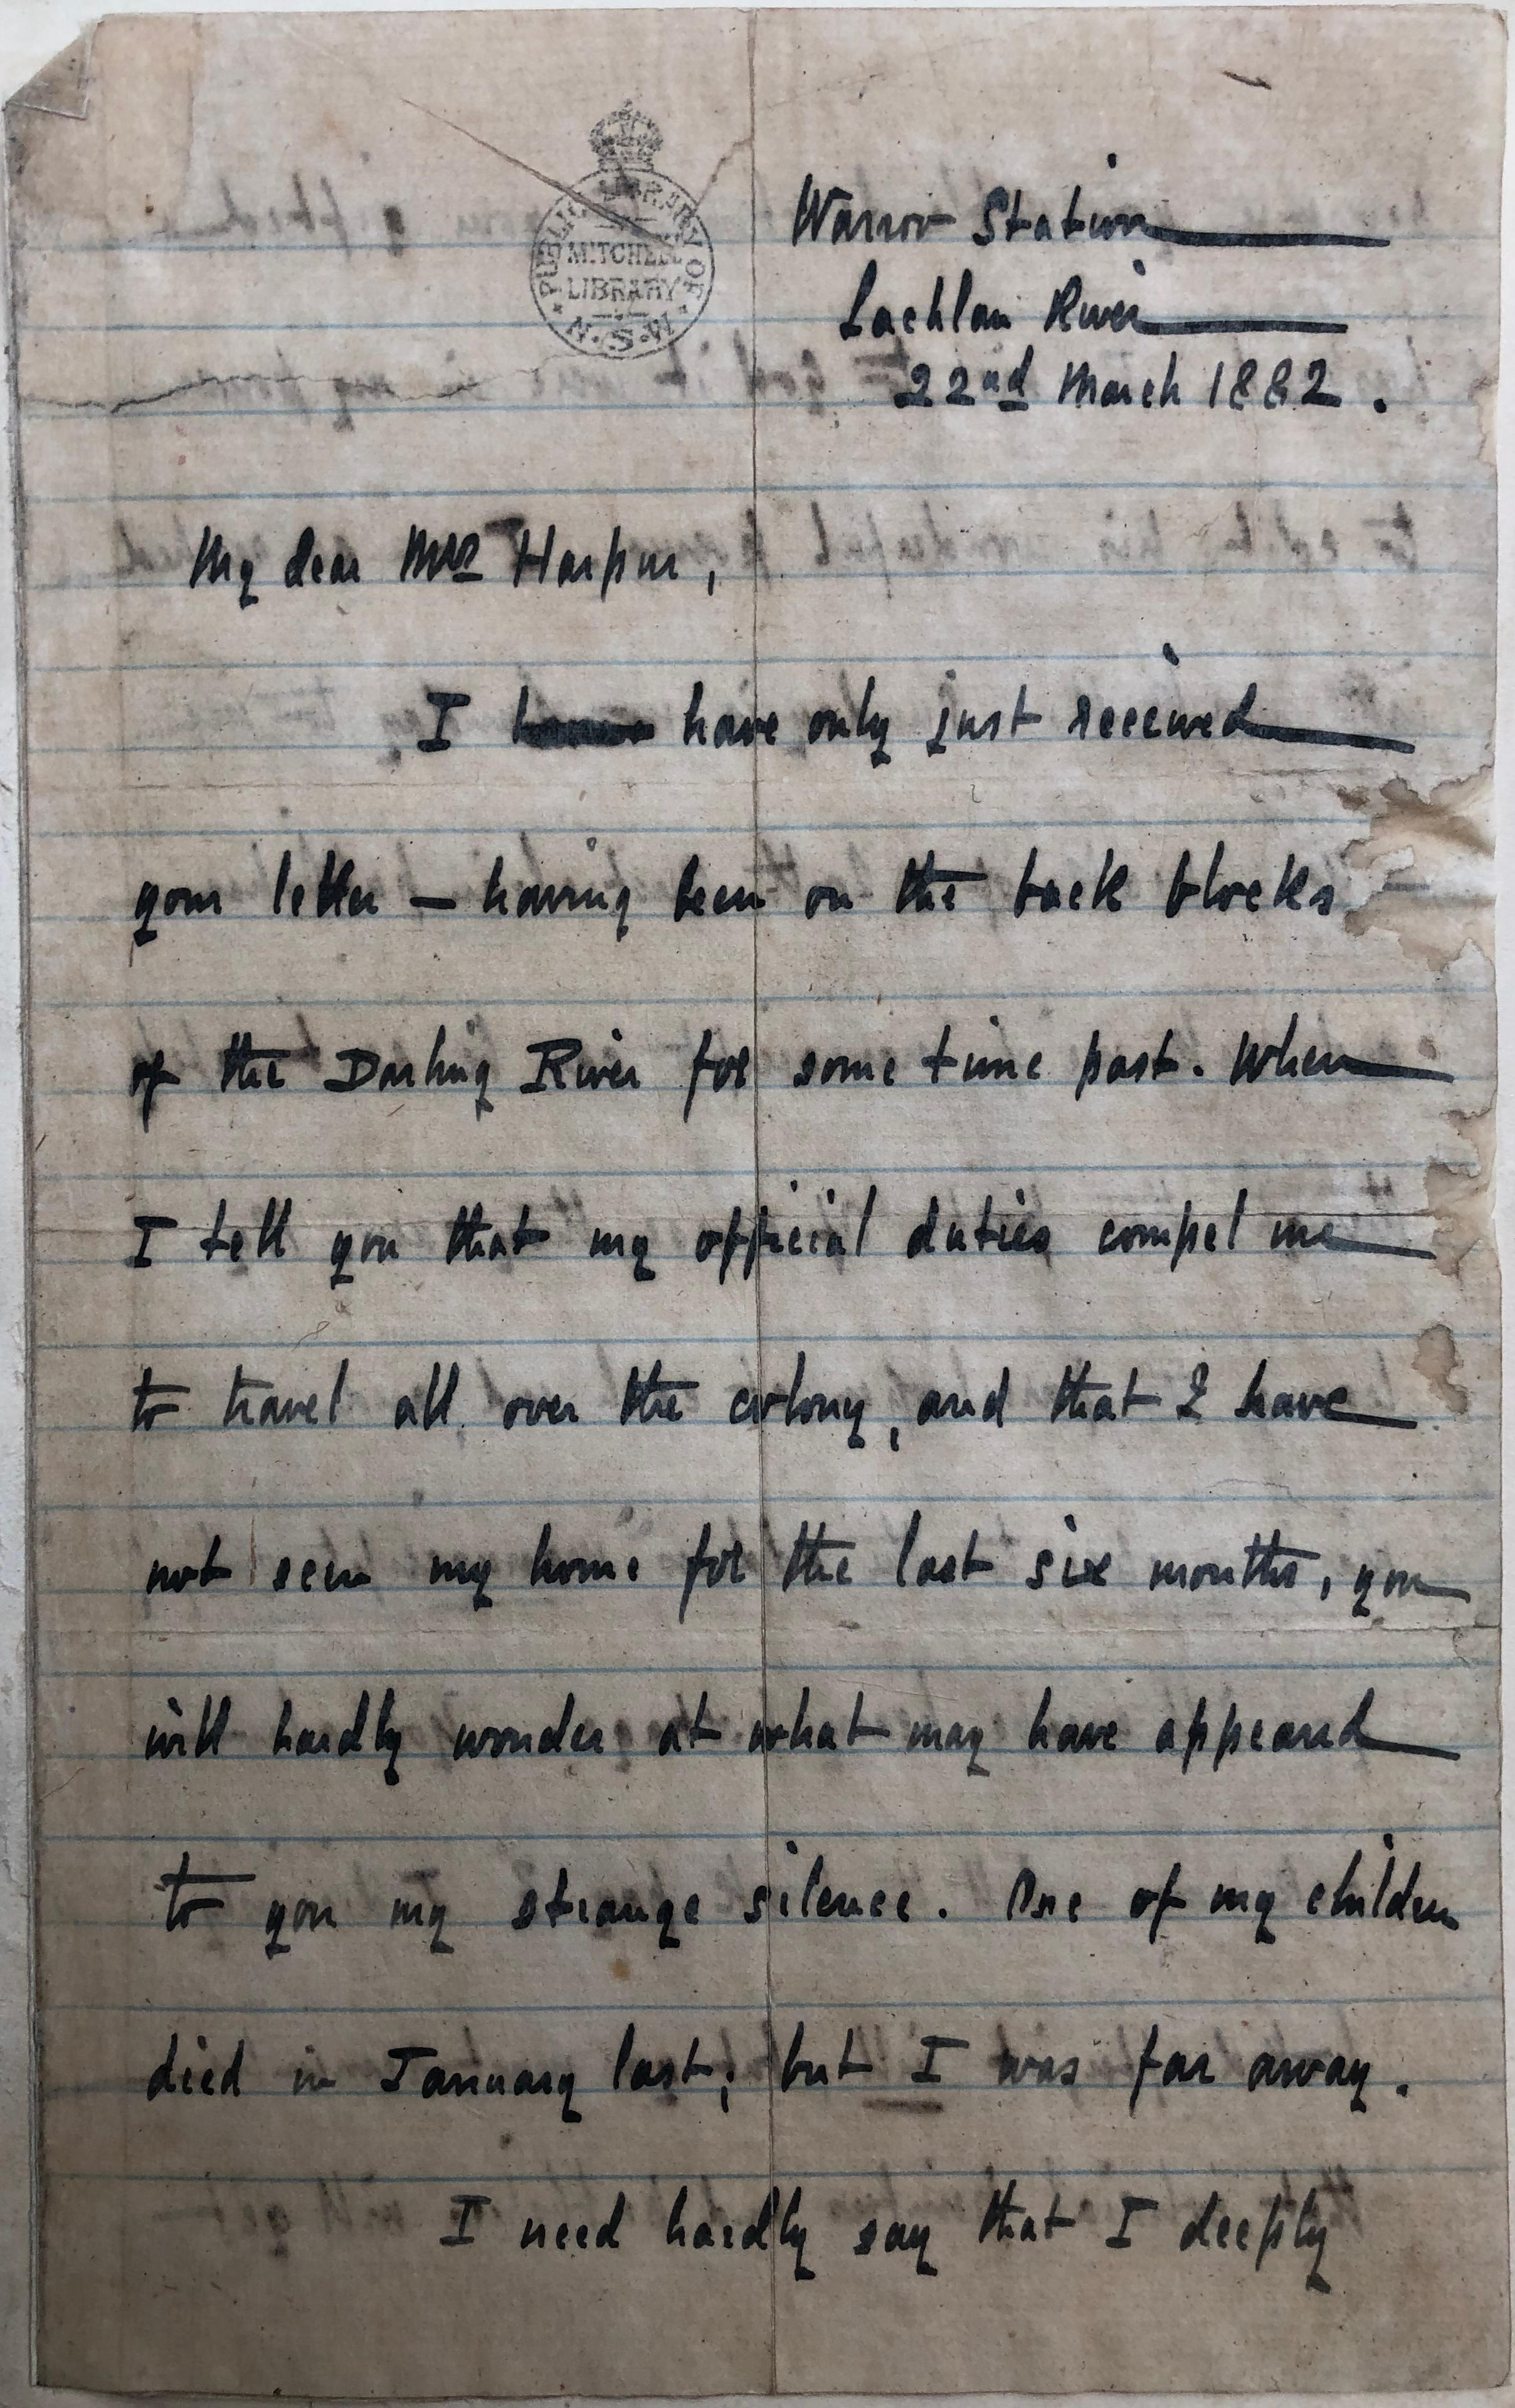 PUBLIC LIBRARY OF N.S.W.
MITCHELL
LIBRARY
Warroo Station
Lachlan River
22nd March 1882.
My dear Mrs Harpur,
I have only just received
your letter — having been on the back blocks
of the Darling River for some time past. When
I tell you that my official duties compel me
to travel all over the colony, and that I have
not seen my home for the last six months, you
will hardly wonder at what may have appeared
to you my strange silence. One of my children
died in January last; but I was far away.
I need hardly say that I deeply